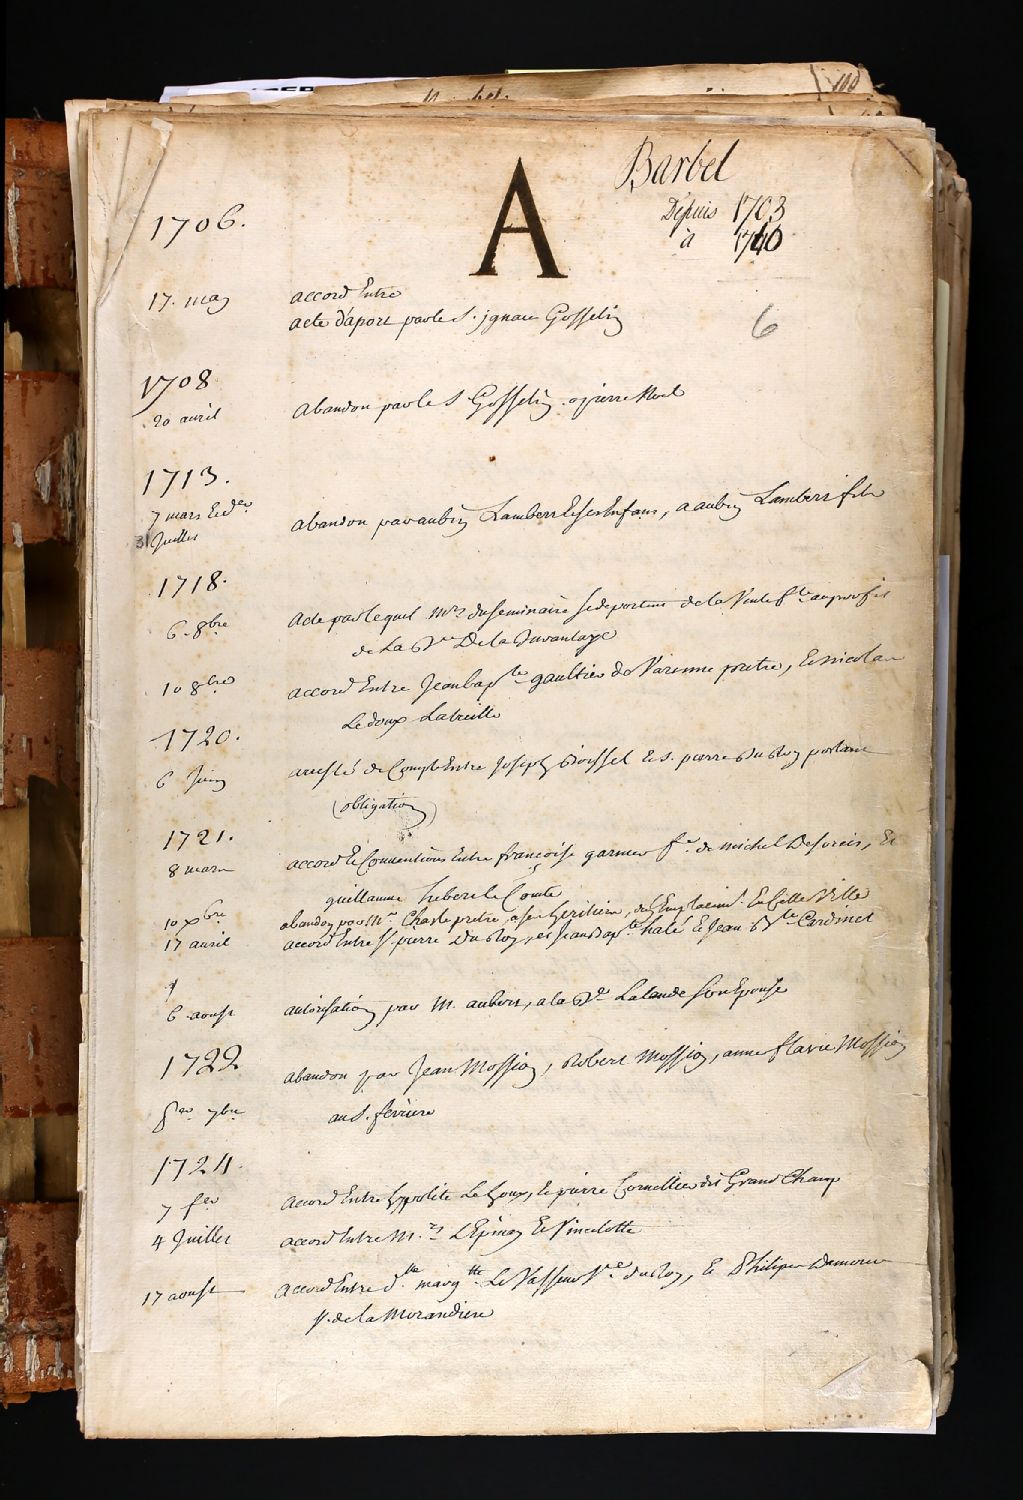 A
Barbel
Depuis 1703
à 1740
6
1706.
17. may accord Entre
acte d'aport par le S. jgnace Gosselin
1708
20 avril Abandon par le S Gosselin a pierre
1713.
7 mars Et der abandon par aubin Lambert et ses Enfans, a aubin Lambert fils
31 Juillet
1718.
6. 8bre Acte par lequel Mrs du seminaire se deportent de la Vente fte au profit
de La Ve De la Davantage
10 8bre accord Entre Jean bapte gaultier de Varenne pretre, Et nicolas
Ledoux Latreille
1720.
6 Juin aresté de Compte Entre Joseph Boissel et s. pierre Du Roy portant
(obligation)
1721.
8 mars accord Et Conventions Entre françoise garnier fe. de michel Desorcis, Et
guillaume hebert le Comte
10 xbre abandon par Mr Charle pretre, a ses heritiers, de l'Emplacemt. En cette Ville
17 avril accord Entre S. pierre Du Roy, et Jean bapte halé Et Jean Bte Cardinet
6 aoust autorisation par M. aubert, a la De Lalande son Epouse
1722
8er 7bre abandon par Jean Mossion, Robert Mossion, anne flavie Mossion
au S. feriere
1724.
7 fer Accord Entre hypolite Le houx, Et pierre Cornellier dit Grand Champ
4 Juillet accord Entre M.rs L'Epinay Et Vincelotte
17 aoust Accord Entre dlle. margtte. Le Vasseur Ve. du Roy, Et Philipe Damours
S. de la Morandiere